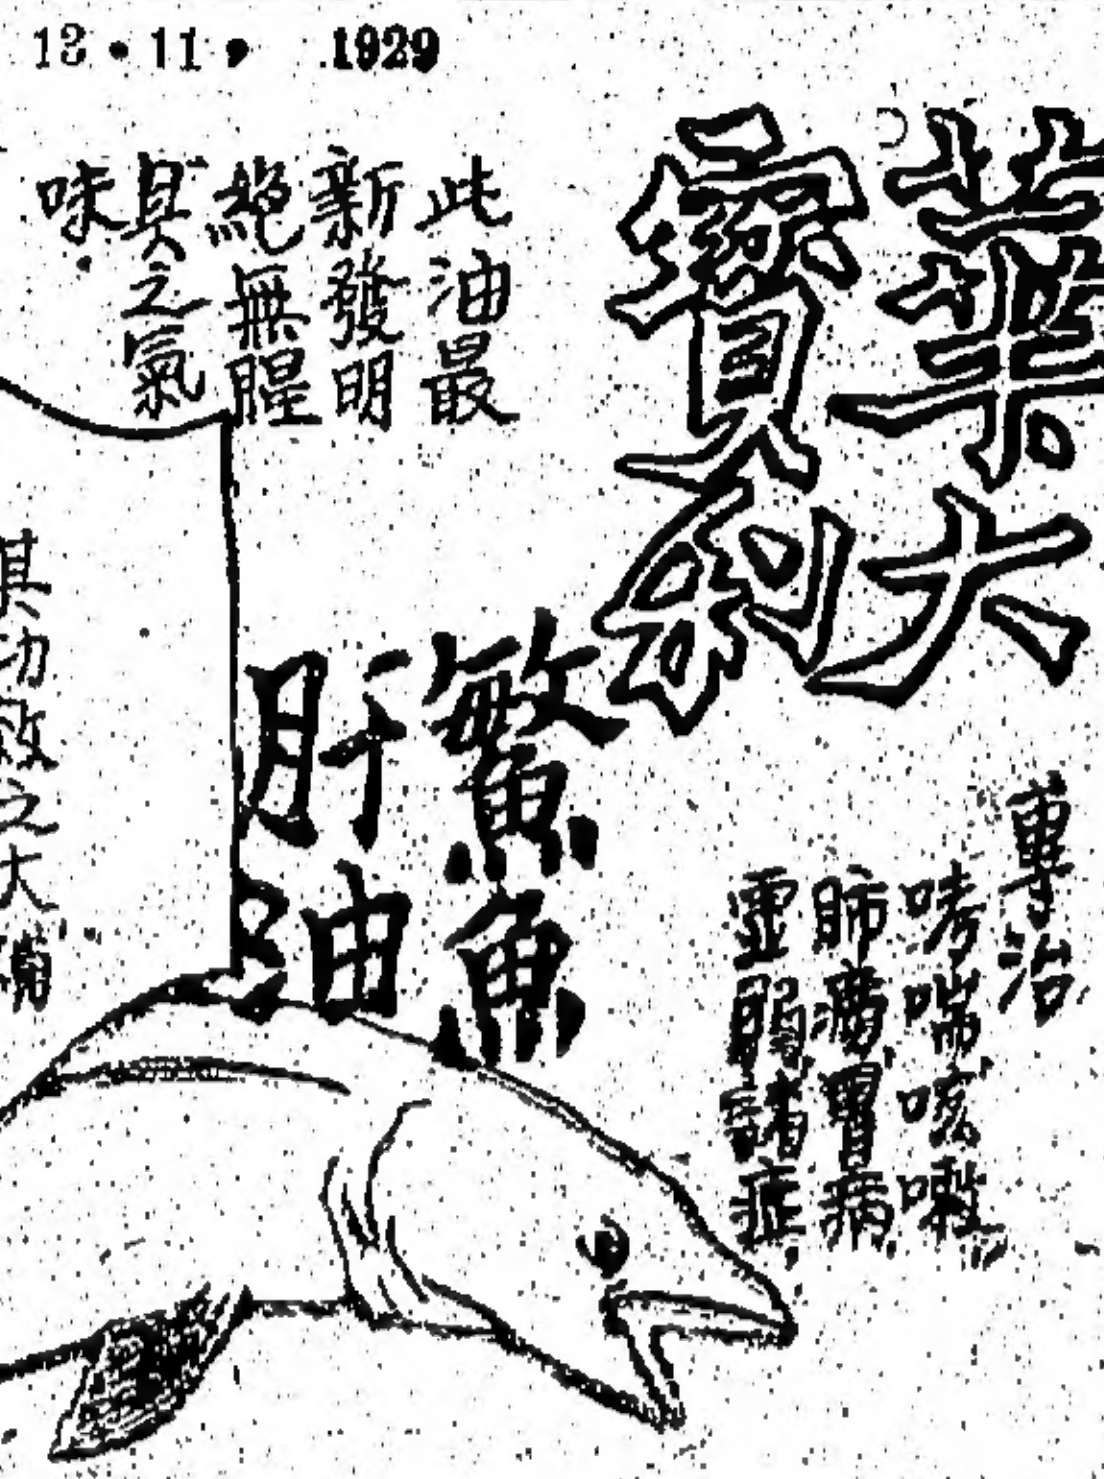 13·11, 1929
葉大
寶利
鰵魚
肝油
此油最
新發明
絕無腥
臭之氣
味
專治
哮喘咳嗽
肺癆胃病
虛弱諸症
其功效之大